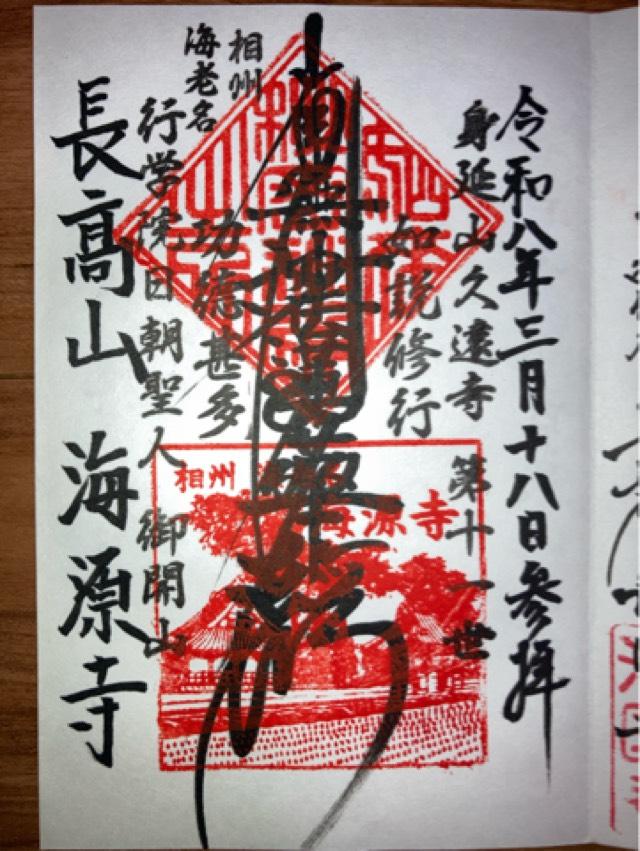 令和八年三月十八日参拝
身延山久遠寺 第十一世
如説修行
南無妙法蓮華経
功徳甚多
相州
海老名
行学院日朝聖人 御開山
長髙山 海源寺
相州
海源寺